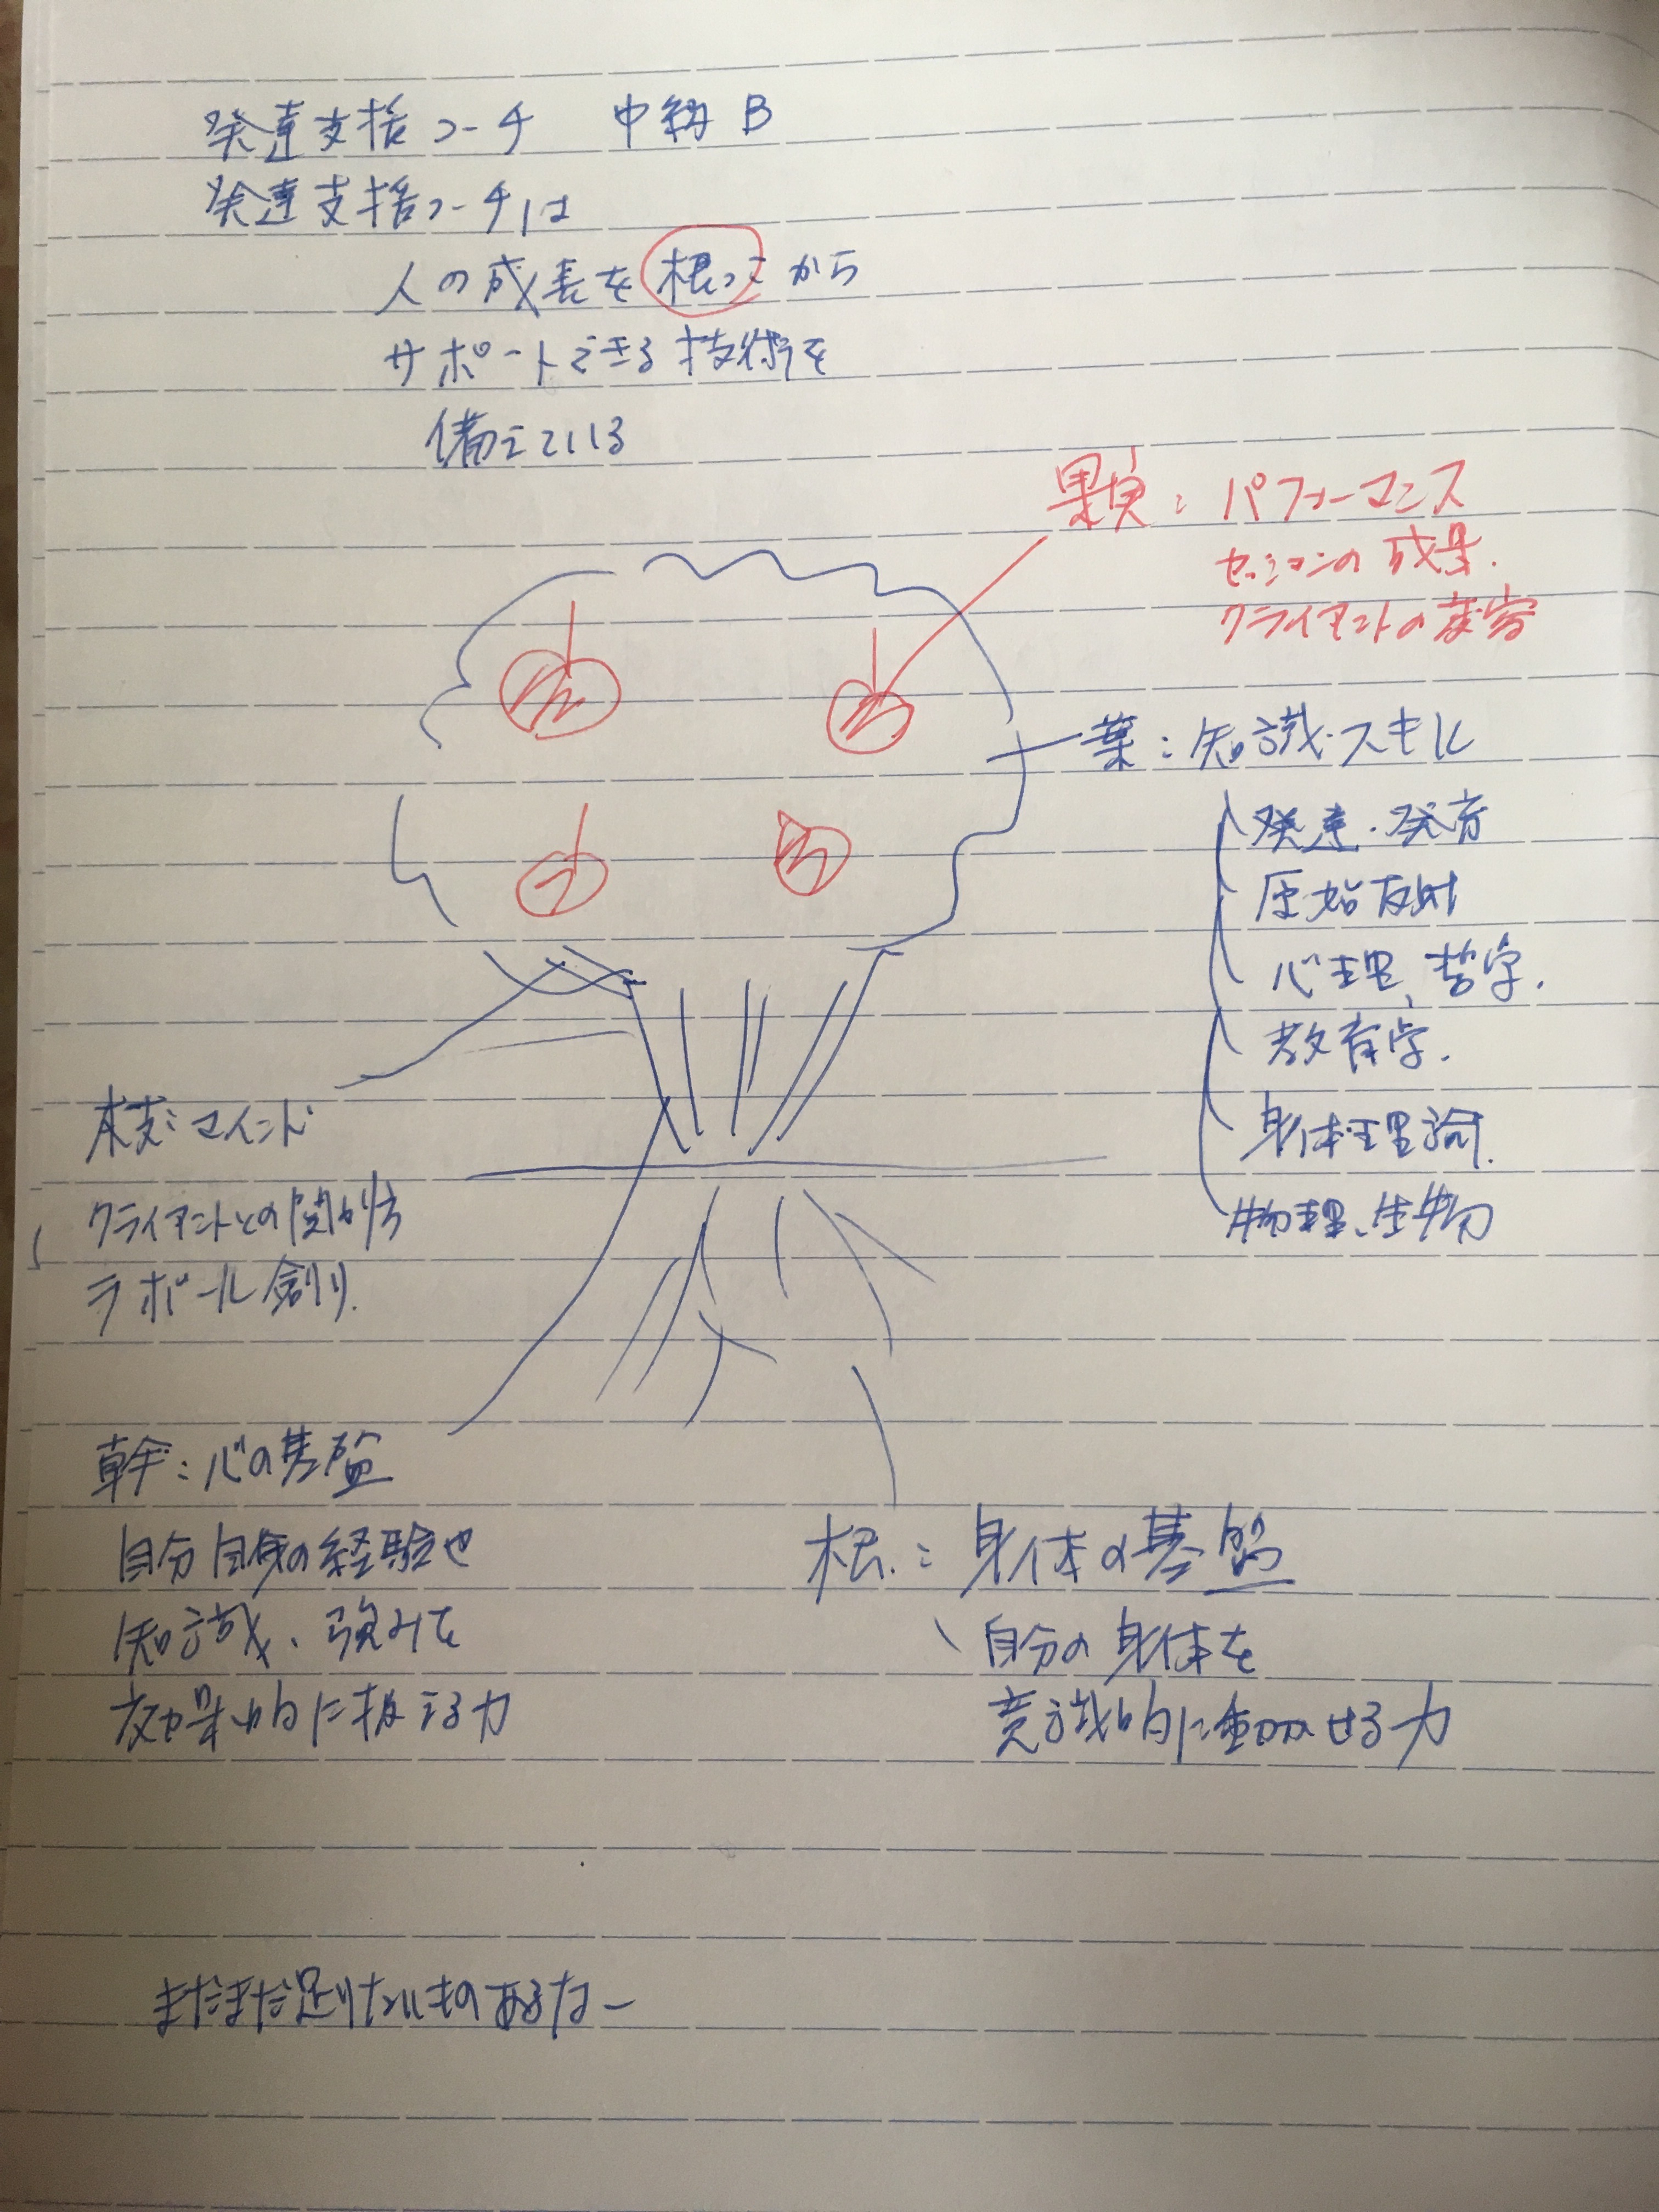 発達支援コーチ 中級B
発達支援コーチは
人の成長を根っこから
サポートできる技術を
備えている
果実：パフォーマンス
セッションの成果.
クライアントの変容
葉：知識・スキル
発達・発育
原始反射
心理、哲学.
教育学.
身体理論.
物理、生物
木支：マインド
クライアントとの関わり方
ラポール創り.
幹：心の基盤
自分自身の経験や
知識、強みを
効果的に扱える力
根：身体の基盤
自分の身体を
意識的に動かせる力
まだまだ足りないものあるなー